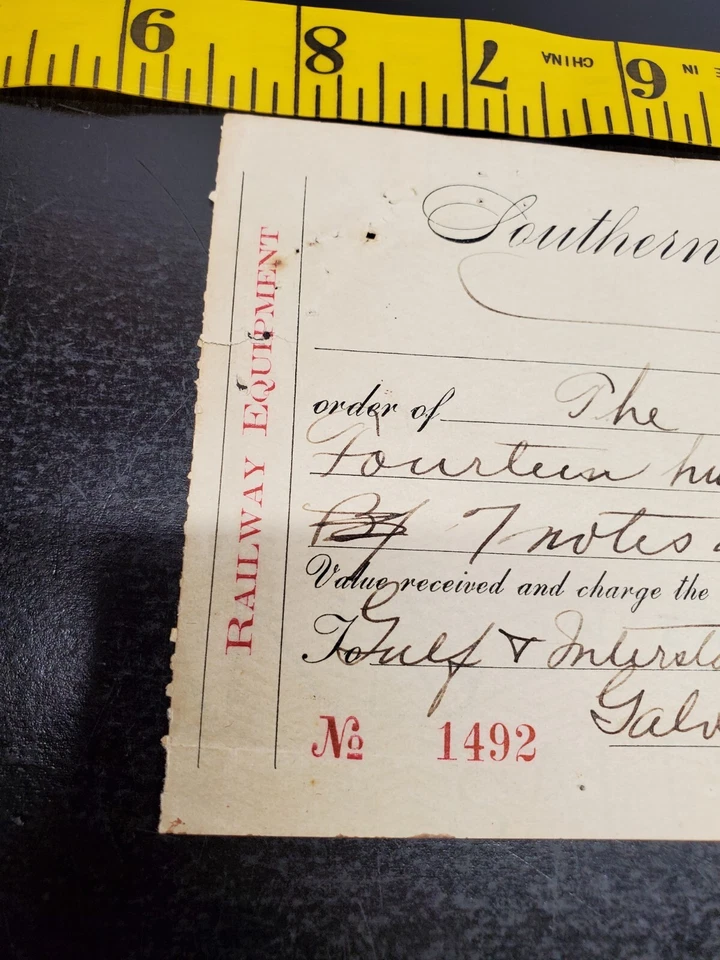 9 8 7 CHINA 6 IN
Southern
RAILWAY EQUIPMENT
order of The
Fourteen hu
By 7 notes
Value received and charge the
To Gulf & Intersta
Galv
No 1492